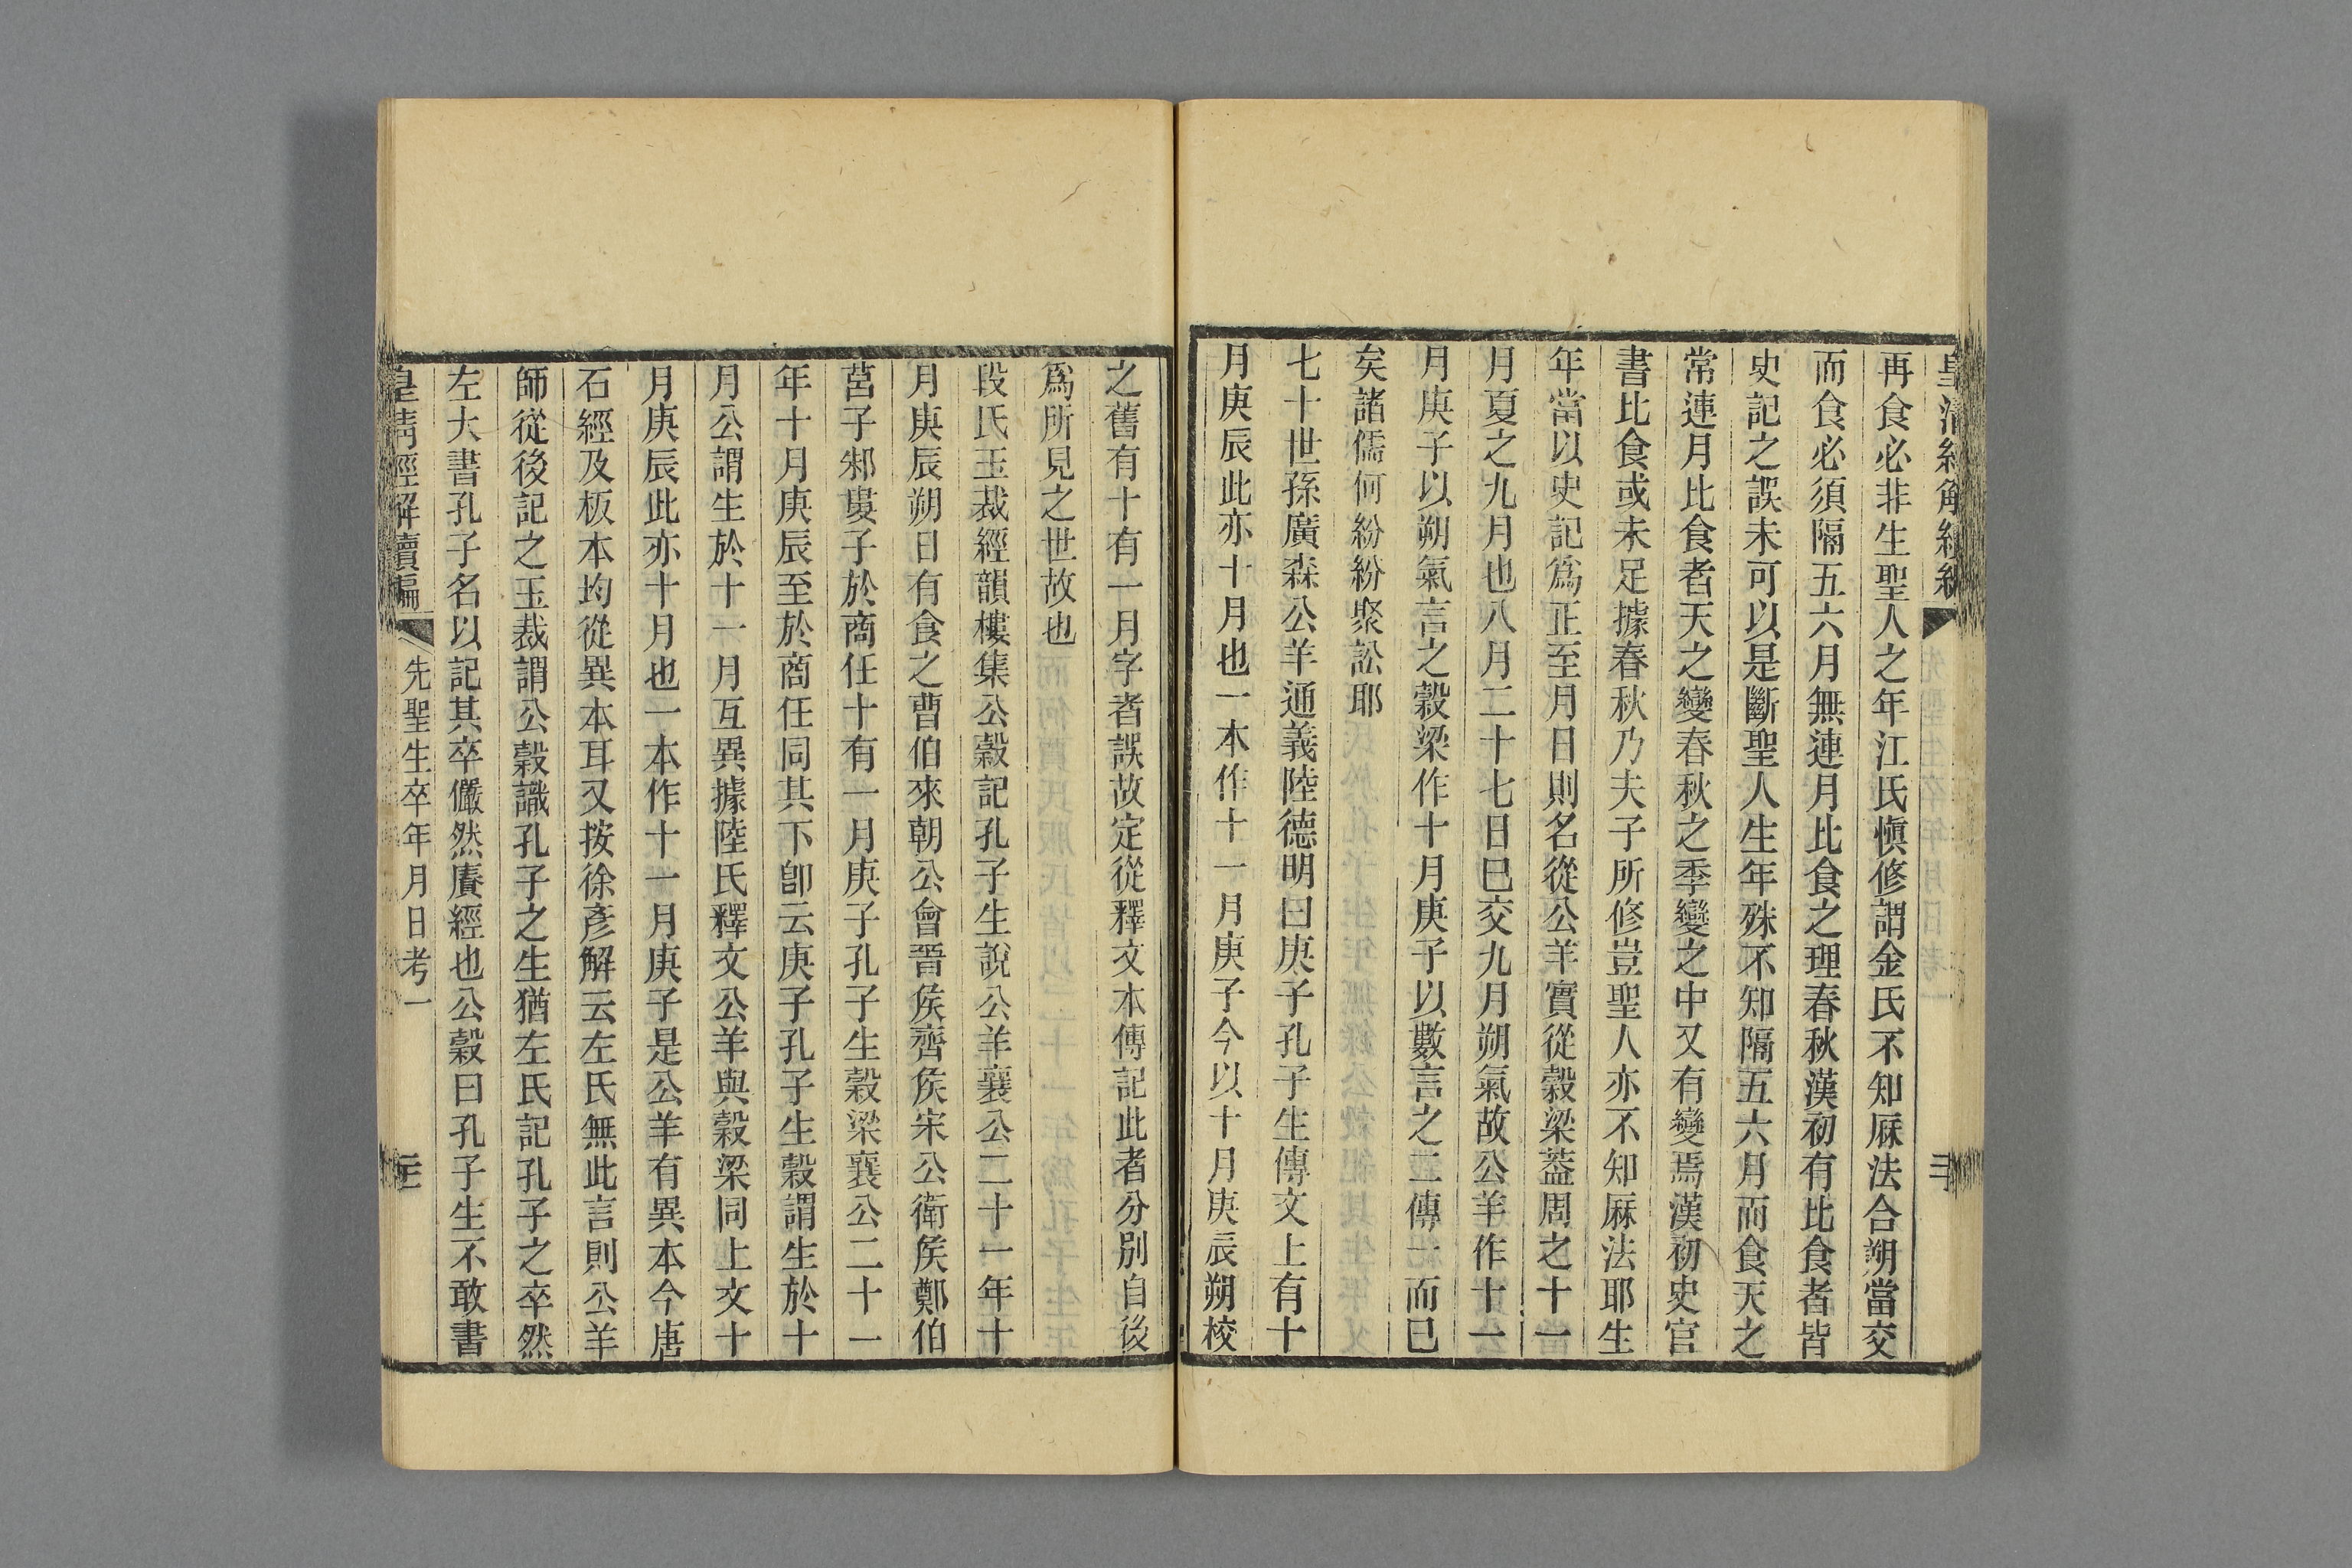 再食必非生聖人之年江氏愼修謂金氏不知厤法合朔當交
而食必須隔五六月無連月比食之理春秋漢初有比食者皆
史記之誤未可以是斷聖人生年殊不知隔五六月而食天之
常連月比食者天之變春秋之季變之中又有變焉漢初史官
書比食或未足據春秋乃夫子所修豈聖人亦不知厤法耶生
年當以史記爲正至月日則名從公羊實從穀梁葢周之十一
月夏之九月也八月二十七日巳交九月朔氣故公羊作十一
月庚子以朔氣言之穀梁作十月庚子以數言之二傳一而巳
矣諸儒何紛紛聚訟耶
七十世孫廣森公羊通義陸德明曰庚子孔子生傳文上有十
月庚辰此亦十月也一本作十一月庚子今以十月庚辰朔校
之舊有十有一月字者誤故定從釋文本傳記此者分別自後
爲所見之世故也
段氏玉裁經韻樓集公穀記孔子生說公羊襄公二十一年十
月庚辰朔日有食之曹伯來朝公會晉矦齊矦宋公衛矦鄭伯
莒子邾婁子於商任十有一月庚子孔子生穀梁襄公二十一
年十月庚辰至於商任同其下卽云庚子孔子生穀謂生於十
月公謂生於十一月互異據陸氏釋文公羊與穀梁同上文十
月庚辰此亦十月也一本作十一月庚子是公羊有異本今唐
石經及板本均從異本耳又按徐彥解云左氏無此言則公羊
師從後記之玉裁謂公穀識孔子之生猶左氏記孔子之卒然
左大書孔子名以記其卒儼然賡經也公穀曰孔子生不敢書
皇清經解續編
先聖生卒年月日考一